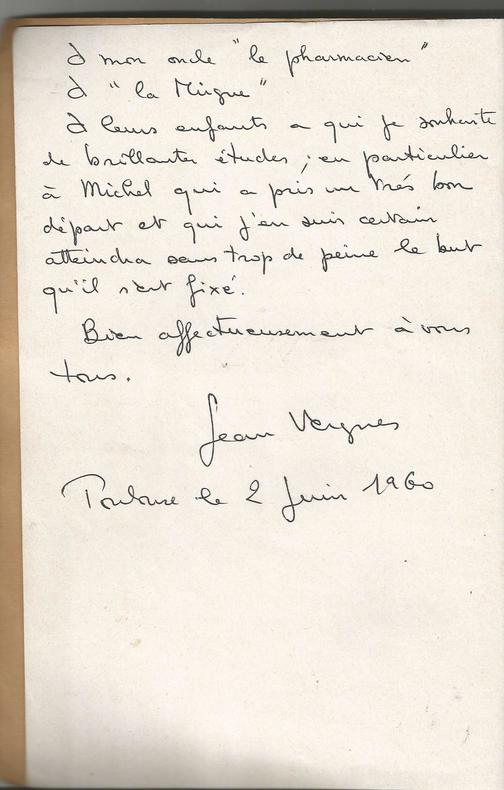 à mon oncle "le pharmacien"
à "la Mirgue"
à leurs enfants a qui je souhaite
de brillantes études ; en particulier
à Michel qui a pris un très bon
départ et qui j'en suis certain
atteindra sans trop de peine le but
qu'il s'est fixé.
Bien affectueusement à vous
tous.
Jean Vergnes
Toulouse le 2 Juin 1960